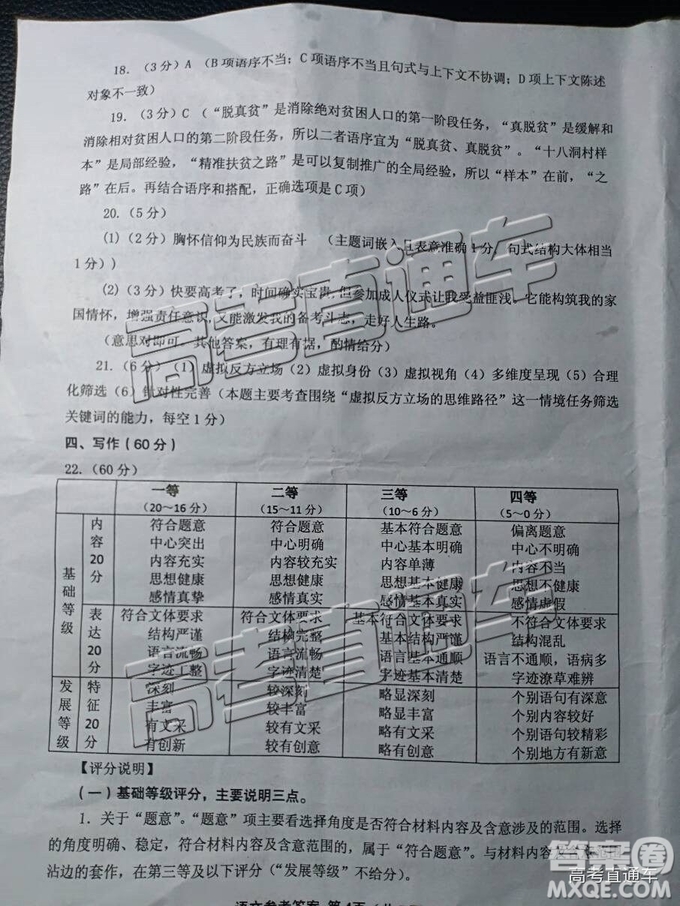 18.（3分）A （B项语序不当；C项语序不当且句式与上下文不协调；D项上下文陈述
对象不一致）
19.（3分）C （“脱真贫”是消除绝对贫困人口的第一阶段任务，“真脱贫”是缓解和
消除相对贫困人口的第二阶段任务，所以二者语序宜为“脱真贫、真脱贫”。“十八洞村样
本”是局部经验，“精准扶贫之路”是可以复制推广的全局经验，所以“样本”在前，“之
路”在后。再结合语序和搭配，正确选项是C项）
20.（5分）
(1)（2分）胸怀信仰为民族而奋斗 （主题词嵌入且表意准确1分，句式结构大体相当
1分））
(2)（3分）快要高考了，时间确实宝贵,但参加成人仪式让我受益匪浅。它能构筑我的家
国情怀，增强责任意识,又能激发我的备考斗志，走好人生路。
（意思对即可，其他答案，有理有据，酌情给分）
21.（6分）（1）虚拟反方立场（2）虚拟身份（3）虚拟视角（4）多维度呈现（5）合理
化筛选（6）针对性完善（本题主要考查围绕“虚拟反方立场的思维路径”这一情境任务筛选
关键词的能力，每空1分）
四、写作（60分）
22.（60分）
一等 二等 三等 四等
（20～16分） （15～11分） （10～6分） （5～0分）
基础等级
内容20分
符合题意 符合题意 基本符合题意 偏离题意
中心突出 中心明确 中心基本明确 中心不明确
内容充实 内容较充实 内容单薄 内容不当
思想健康 思想健康 思想基本健康 思想不健康
感情真挚 感情真实 感情基本真实 感情虚假
表达20分
符合文体要求 符合文体要求 基本符合文体要求 不符合文体要求
结构严谨 结构完整 结构基本严谨 结构混乱
语言流畅 语言流畅 语言基本通顺 语言不通顺，语病多
字迹工整 字迹清楚 字迹基本清楚 字迹潦草难辨
发展等级
特征20分
深刻 较深刻 略显深刻 个别语句有深意
丰富 较丰富 略显丰富 个别内容较好
有文采 较有文采 略有文采 个别语句较精彩
有创新 较有创意 略有创意 个别地方有新意
【评分说明】
（一）基础等级评分，主要说明三点。
1. 关于“题意”。“题意”项主要看选择角度是否符合材料内容及含意涉及的范围。选择
的角度明确、稳定，符合材料内容及含意范围的，属于“符合题意”。与材料内容及含意不
沾边的套作，在第三等及以下评分（“发展等级”不给分）。
语文参考答案 第4页
高考直通车
高考直通车
高考直通车
答案圈
MXQE.COM